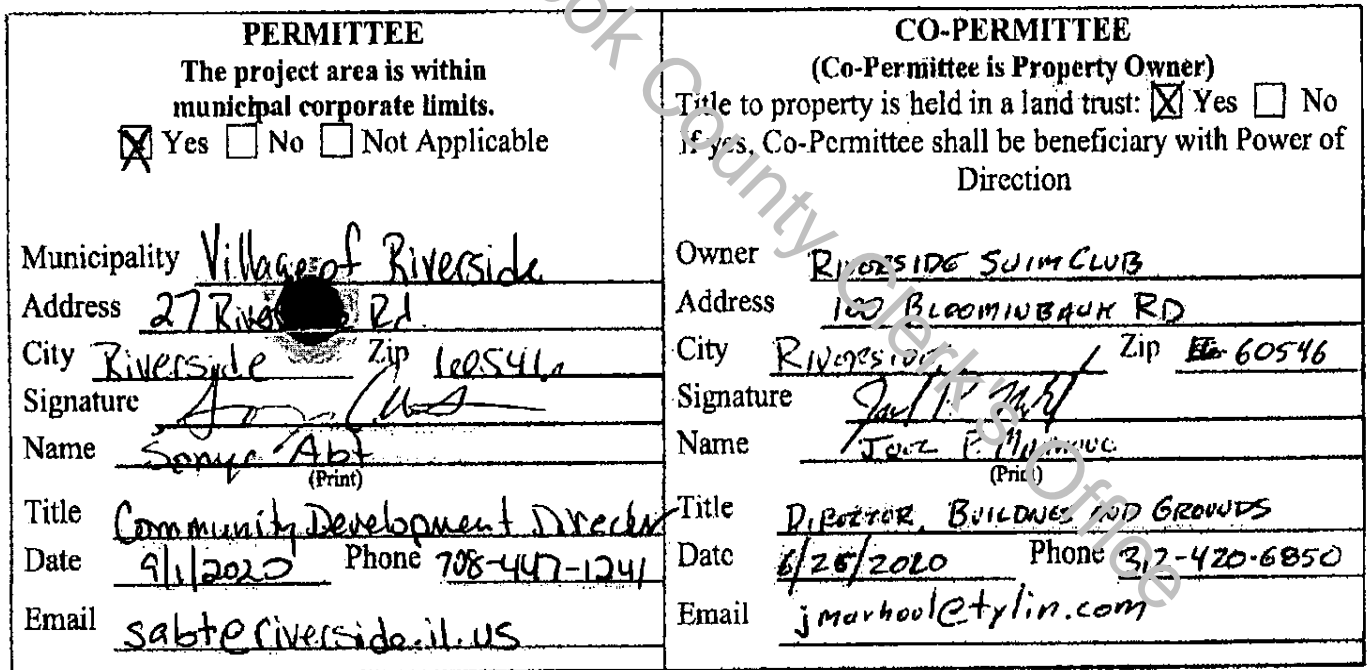 PERMITTEE
The project area is within
municipal corporate limits.
☒ Yes ☐ No ☐ Not Applicable
Municipality Village of Riverside
Address 27 Riverside Rd.
City Riverside Zip 60546
Signature
Name Sonya Abt
(Print)
Title Community Development Director
Date 9/1/2020 Phone 708-447-1241
Email sabt@riverside.il.us
CO-PERMITTEE
(Co-Permittee is Property Owner)
Title to property is held in a land trust: ☒ Yes ☐ No
If yes, Co-Permittee shall be beneficiary with Power of
Direction
Owner RIVERSIDE SWIM CLUB
Address 100 BLOOMINBANK RD
City RIVERSIDE Zip 60546
Signature
Name P.
(Print)
Title DIRECTOR, BUILDINGS AND GROUNDS
Date 6/25/2020 Phone 312-420-6850
Email jmarhoul@tylin.com
ook County Clerk's Office